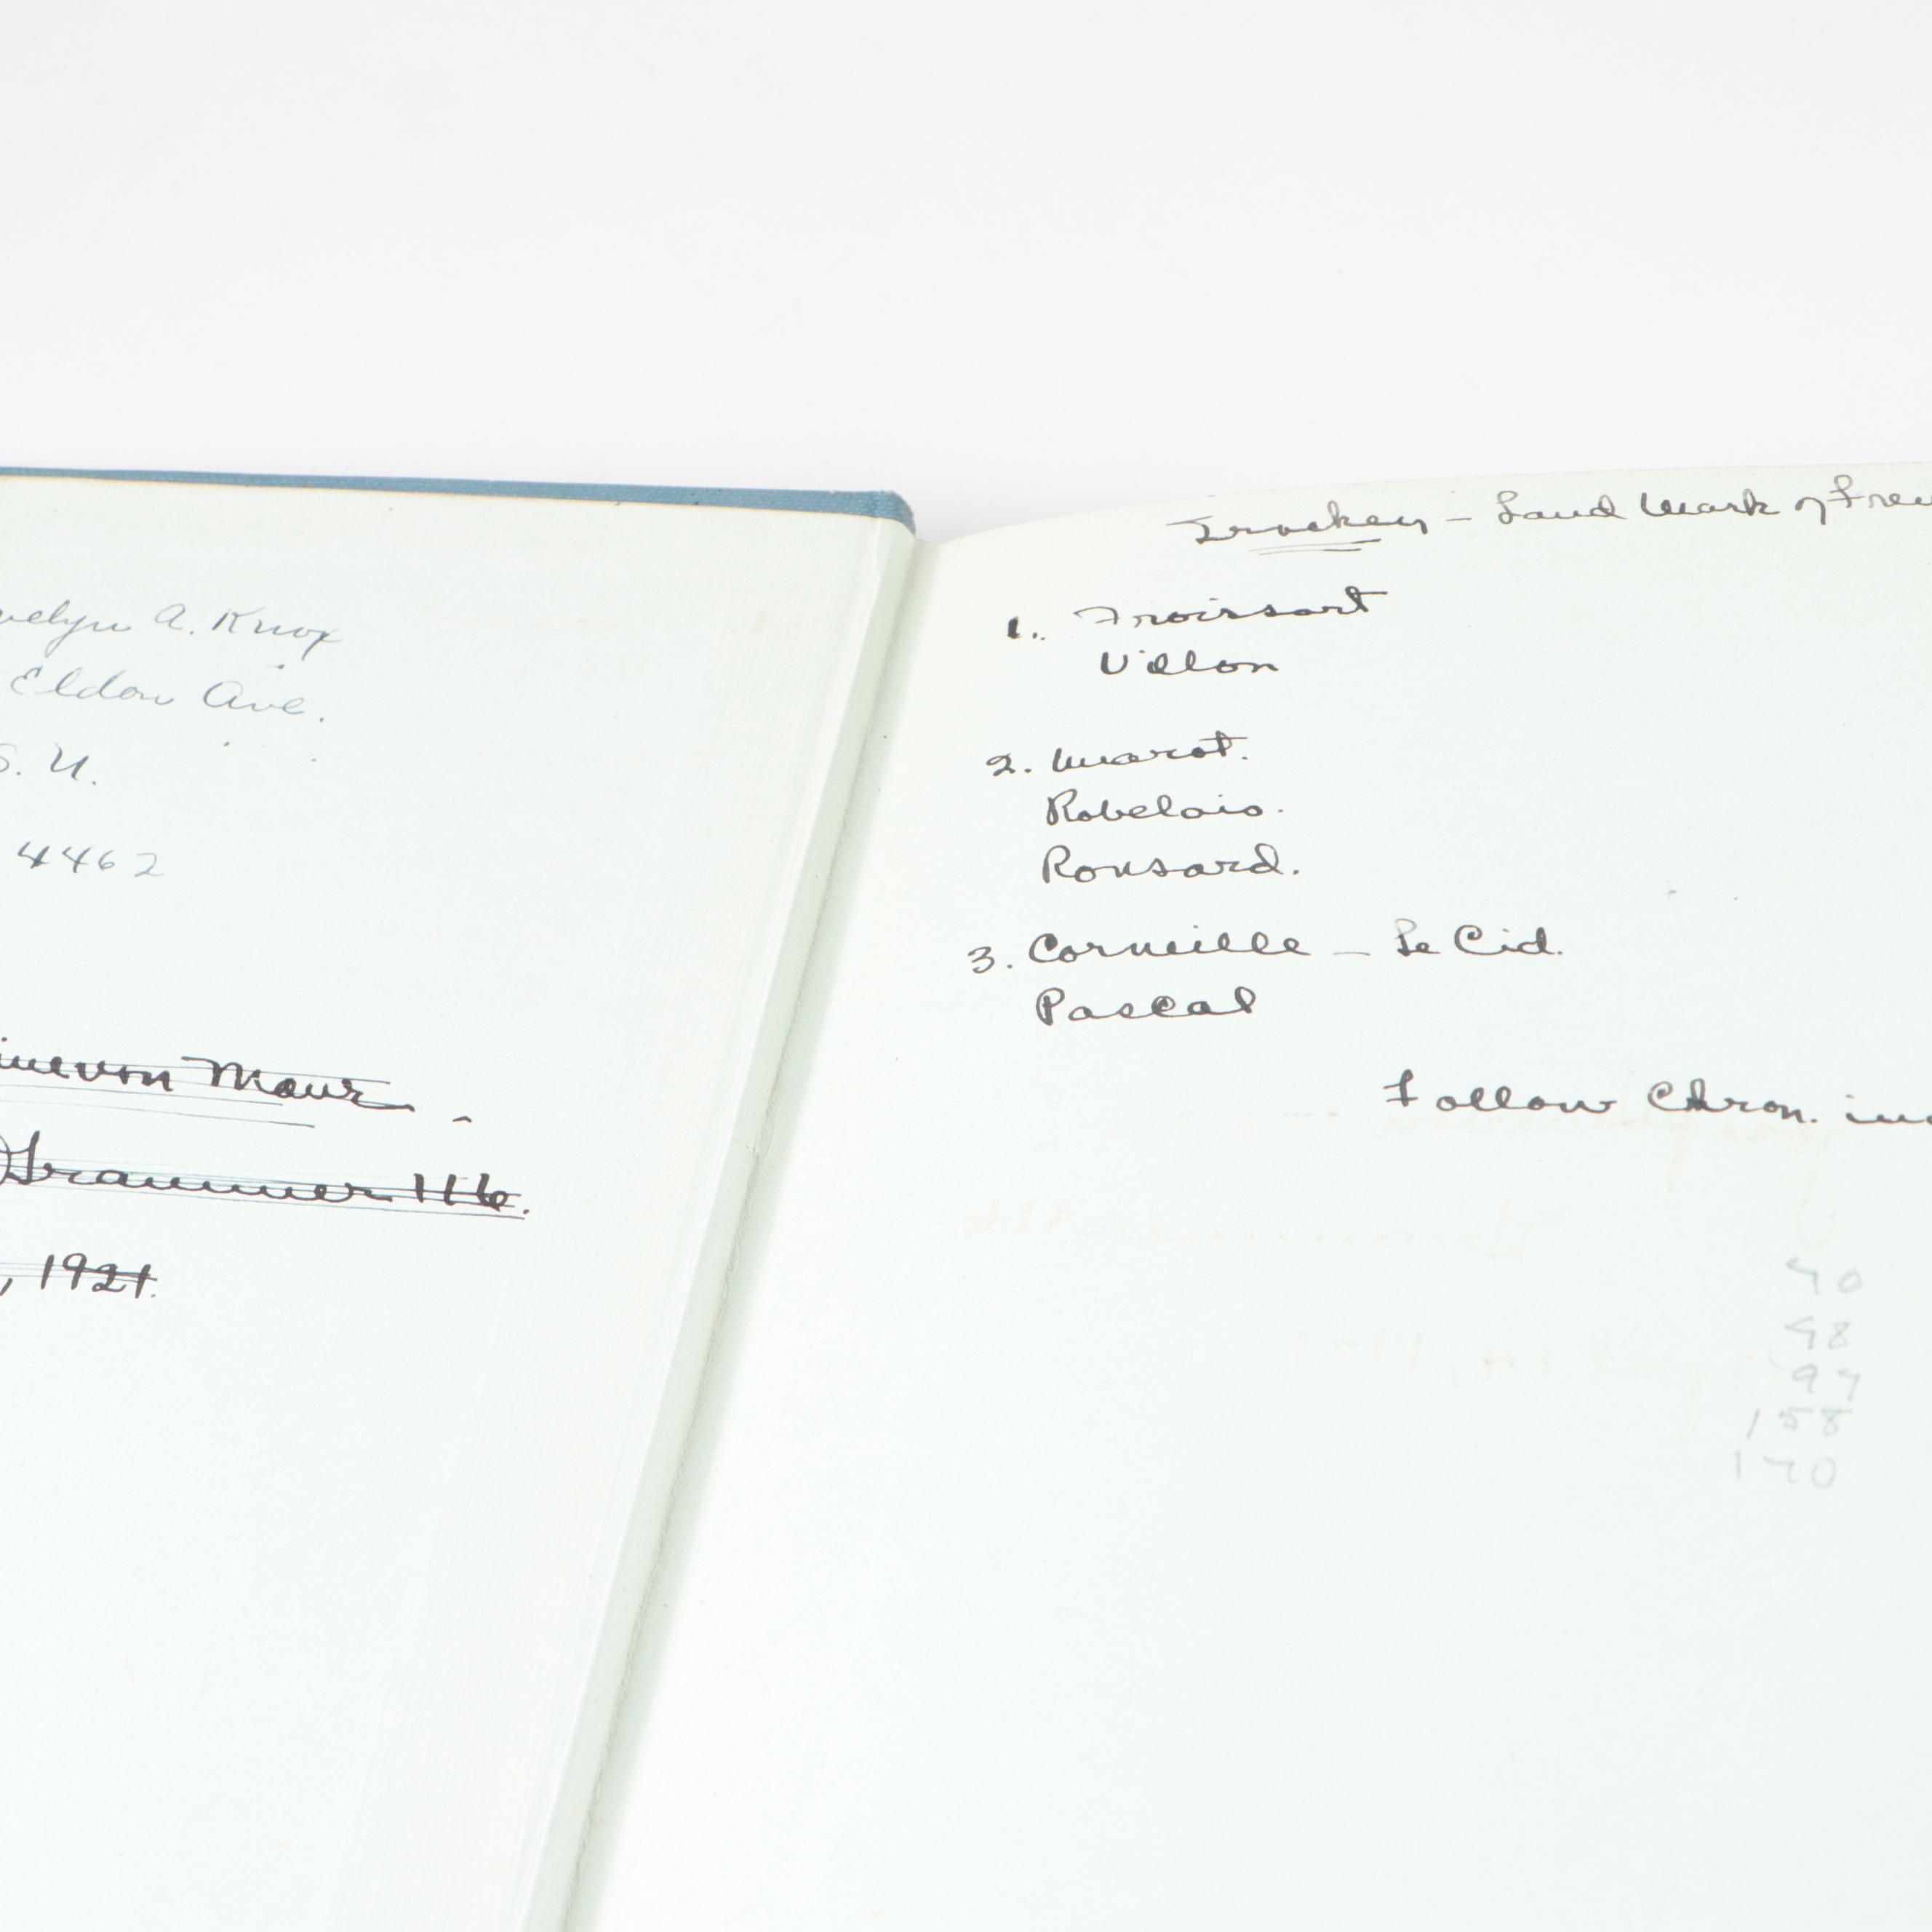 velyn A. Knox
Eldon Ave.
S. U.
4462
von Maur.
Grammer 116.
, 1921.
- Land Mark of Fren
1. Froissart
Villon
2. Marot.
Rabelais.
Ronsard.
3. Corneille - Le Cid.
Pascal
Follow Chron. in
40
48
97
158
170